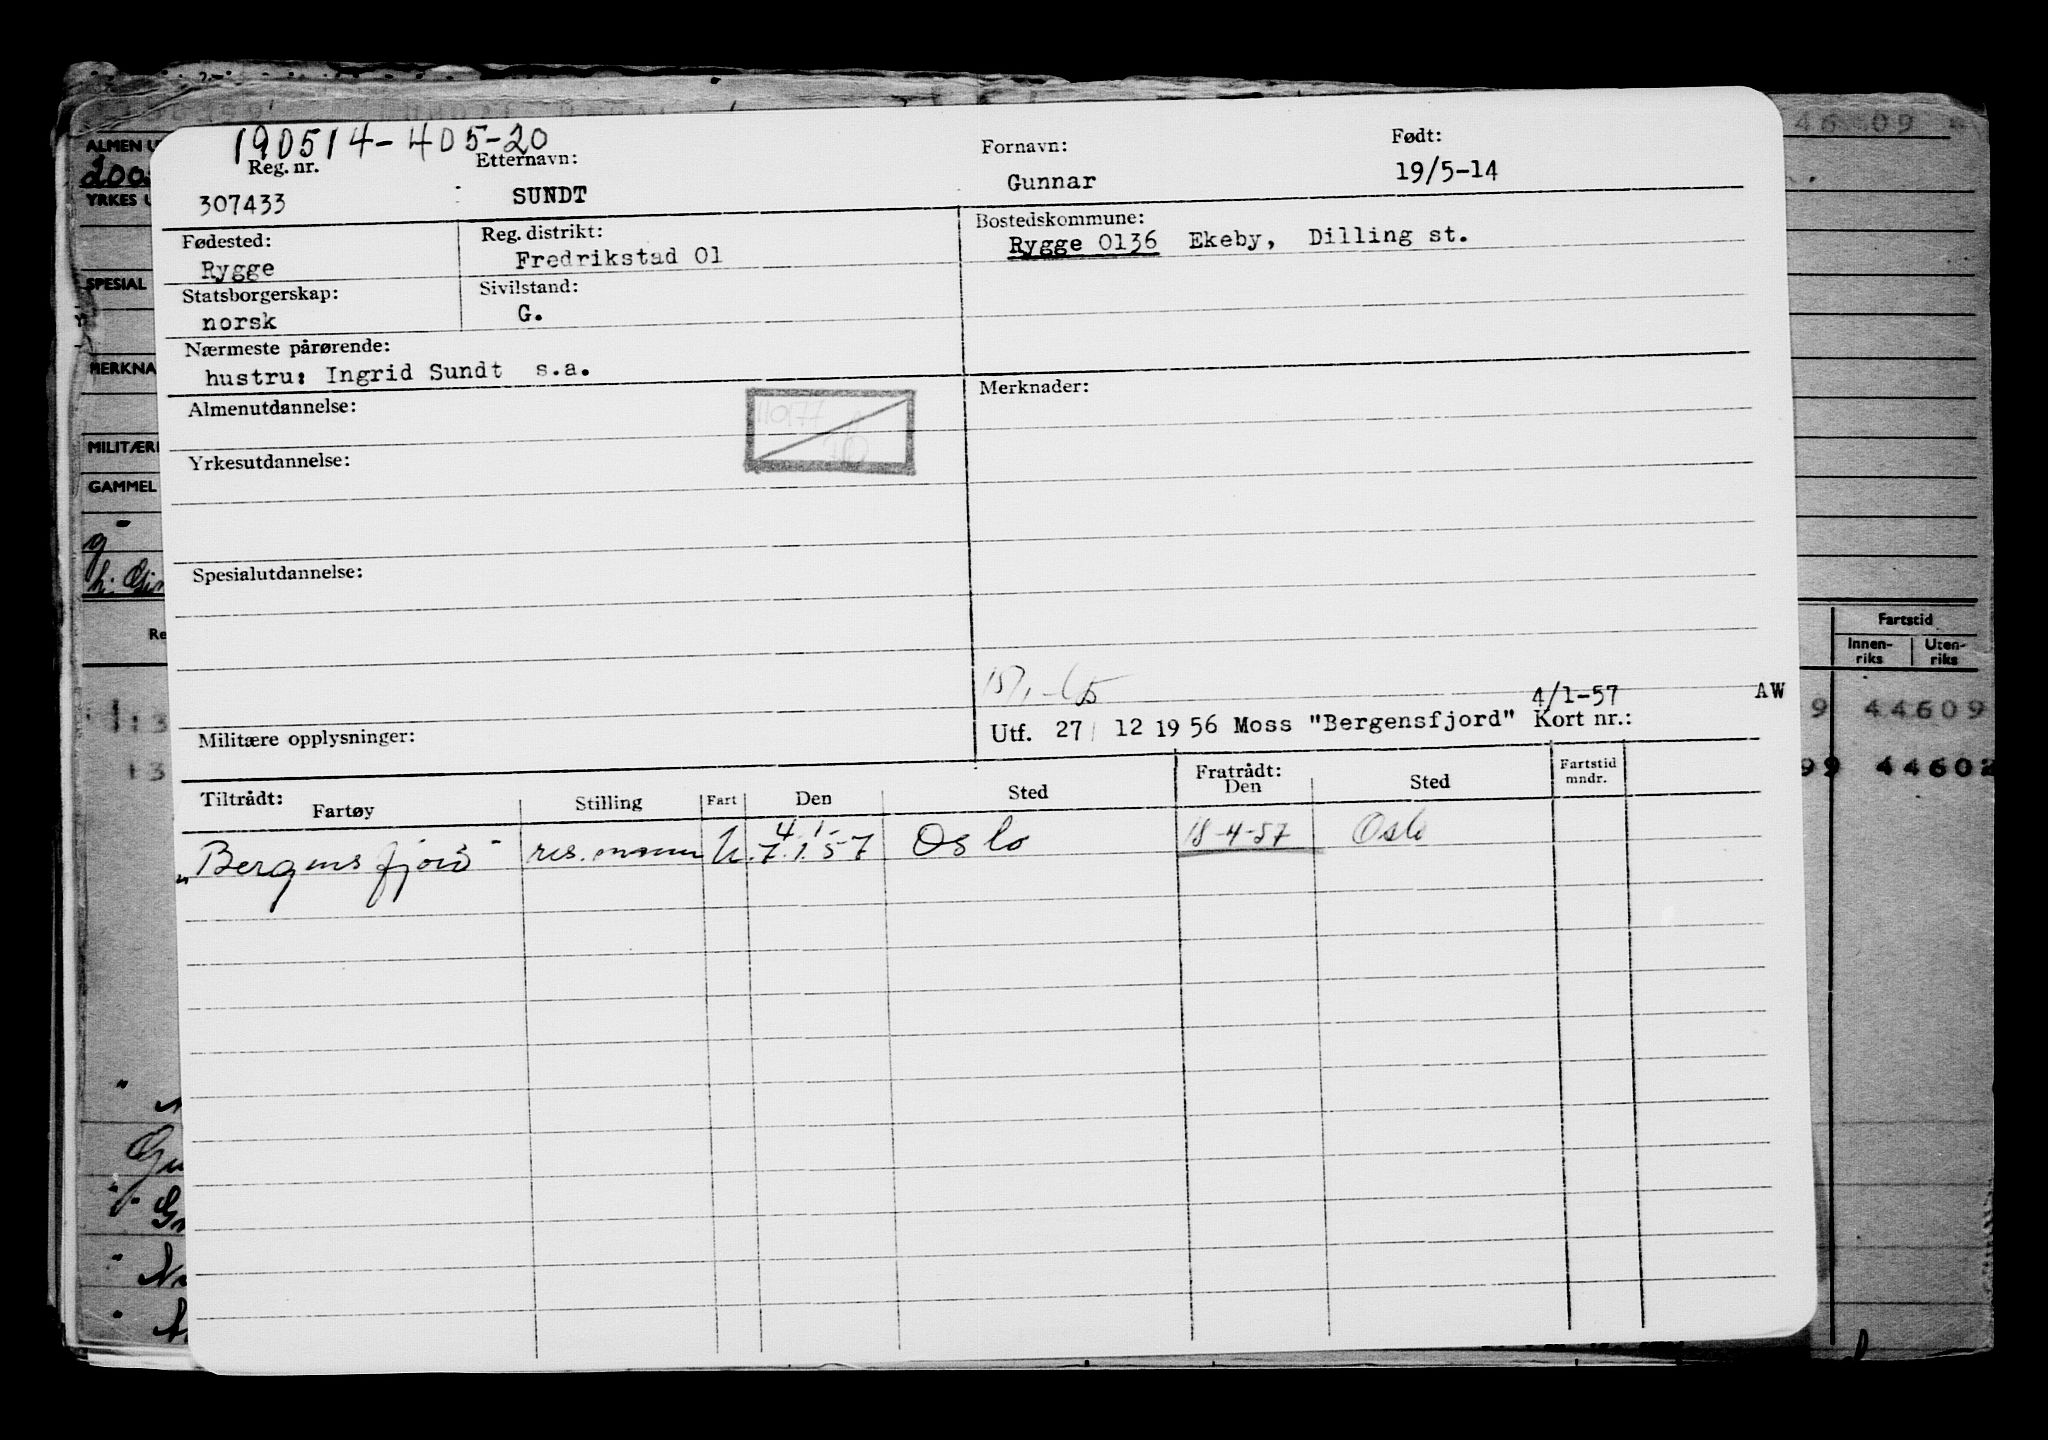 190514-405-20
Reg. nr. Etternavn: Fornavn: Født:
307433 SUNDT Gunnar 19/5-14
Fødested: Reg. distrikt: Bostedskommune:
Rygge Fredrikstad 01 Rygge 0136 Ekeby, Dilling st.
Statsborgerskap: Sivilstand:
norsk G.
Nærmeste pårørende:
hustru: Ingrid Sundt s.a.
Almenutdannelse: Merknader:
Yrkesutdannelse:
Spesialutdannelse:
4/1-57 AW
Militære opplysninger: Utf. 27/ 12 19 56 Moss "Bergensfjord" Kort nr.:
Tiltrådt: Fratrådt: Fartstid
Fartøy Stilling Fart Den Sted Den Sted mndr.
4.1-
"Bergensfjord" res. U. 7.1.57 Oslo 18-4-57 Oslo
ALMEN
YRKES
SPESIAL
MERKNA
MILITÆRE
GAMMEL
g
46609
Fartstid
Innen-riks Uten-riks
9 44609
99 44602